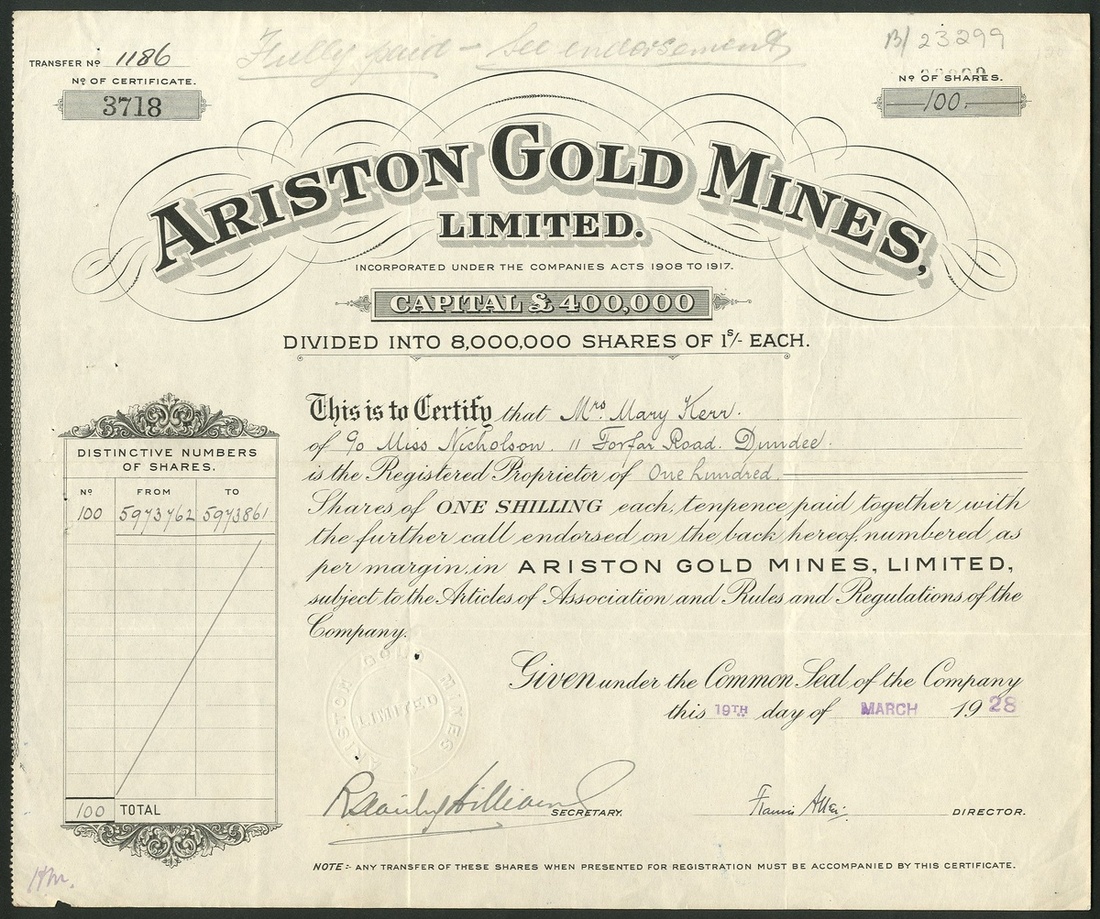 Fully paid - See endorsement
B/ 23299
TRANSFER Nº 1186
Nº OF CERTIFICATE.
3718
Nº OF SHARES.
100.
ARISTON GOLD MINES,
LIMITED.
INCORPORATED UNDER THE COMPANIES ACTS 1908 TO 1917.
CAPITAL £400,000
DIVIDED INTO 8,000,000 SHARES OF 1s/- EACH.
This is to Certify that Mrs Mary Kerr.
of c/o Miss Nicholson. 11 Forfar Road. Dundee.
is the Registered Proprietor of One hundred.
Shares of ONE SHILLING each, tenpence paid together with
the further call endorsed on the back hereof, numbered as
per margin, in ARISTON GOLD MINES, LIMITED,
subject to the Articles of Association and Rules and Regulations of the
Company.
DISTINCTIVE NUMBERS
OF SHARES.
Nº FROM TO
100 5973762 5973861
100 TOTAL
ARISTON GOLD MINES
LIMITED
Given under the Common Seal of the Company
this 19TH day of MARCH 1928
SECRETARY.
Francis Allen DIRECTOR.
NOTE:- ANY TRANSFER OF THESE SHARES WHEN PRESENTED FOR REGISTRATION MUST BE ACCOMPANIED BY THIS CERTIFICATE.